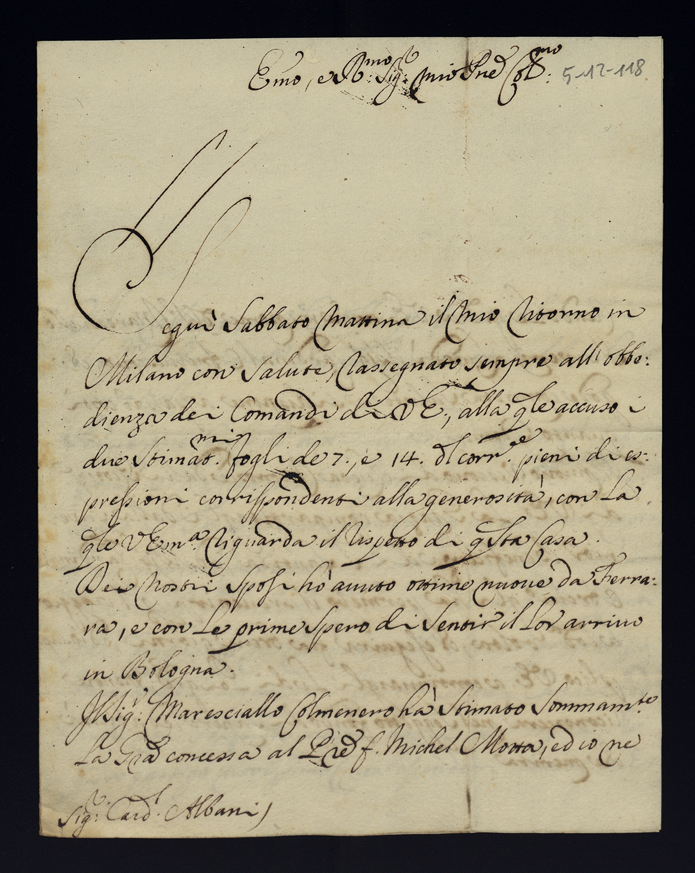 Emo, e Rmo Sigr mio Prõe Colmo: 5-12-118
Seguì Sabbato Mattina il mio ritorno in
Milano con salute, rassegnato sempre all' obbe:
dienza dei Comandi di VE., alla qle accuso i
due Stimatmi fogli de 7., e 14. dl corrte pieni di es:
pressioni corrispondenti alla generosità, con la
qle VEmza riguarda il rispetto di qsta Casa.
Dei nostri Sposi hò avuto ottime nuove da Ferra:
ra, e con le prime spero di sentir il lor arrivo
in Bologna.
Il Sigr Maresciallo Colmenero hà stimato sommamte
la Gra concessa al Pre f. Michel Motta, ed io ne
Sigr Cardl Albani